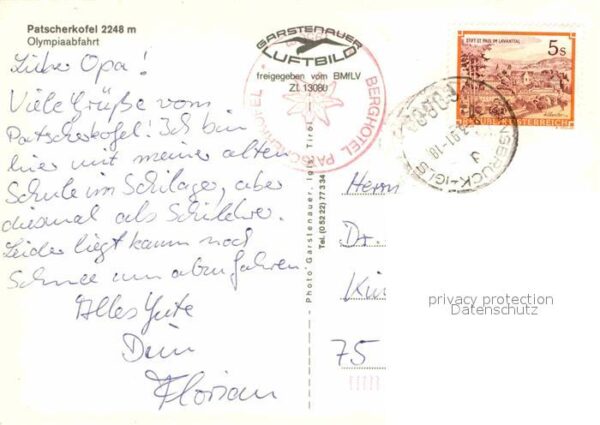 Patscherkofel 2248 m
Olympiaabfahrt
Lieber Opa!
Viele Grüße vom
Patscherkofel! Ich bin
hier mit meiner alten
Schule im Schilager, aber
diesmal als Schilehrer.
Leider liegt kaum noch
Schnee um abzufahren
Alles Gute
Dein
Florian
GARSTENAUER
LUFTBILD
freigegeben vom BMfLV
Zl. 13080
BERGHOTEL PATSCHERKOFEL
Photo Garstenauer, Igls, Tirol
Tel. (05222) 77934
STIFT ST. PAUL IM LAVANTTAL
5s
REPUBLIK ÖSTERREICH
INNSBRUCK-IGLS
Herrn
Dr.
75
privacy protection
Datenschutz